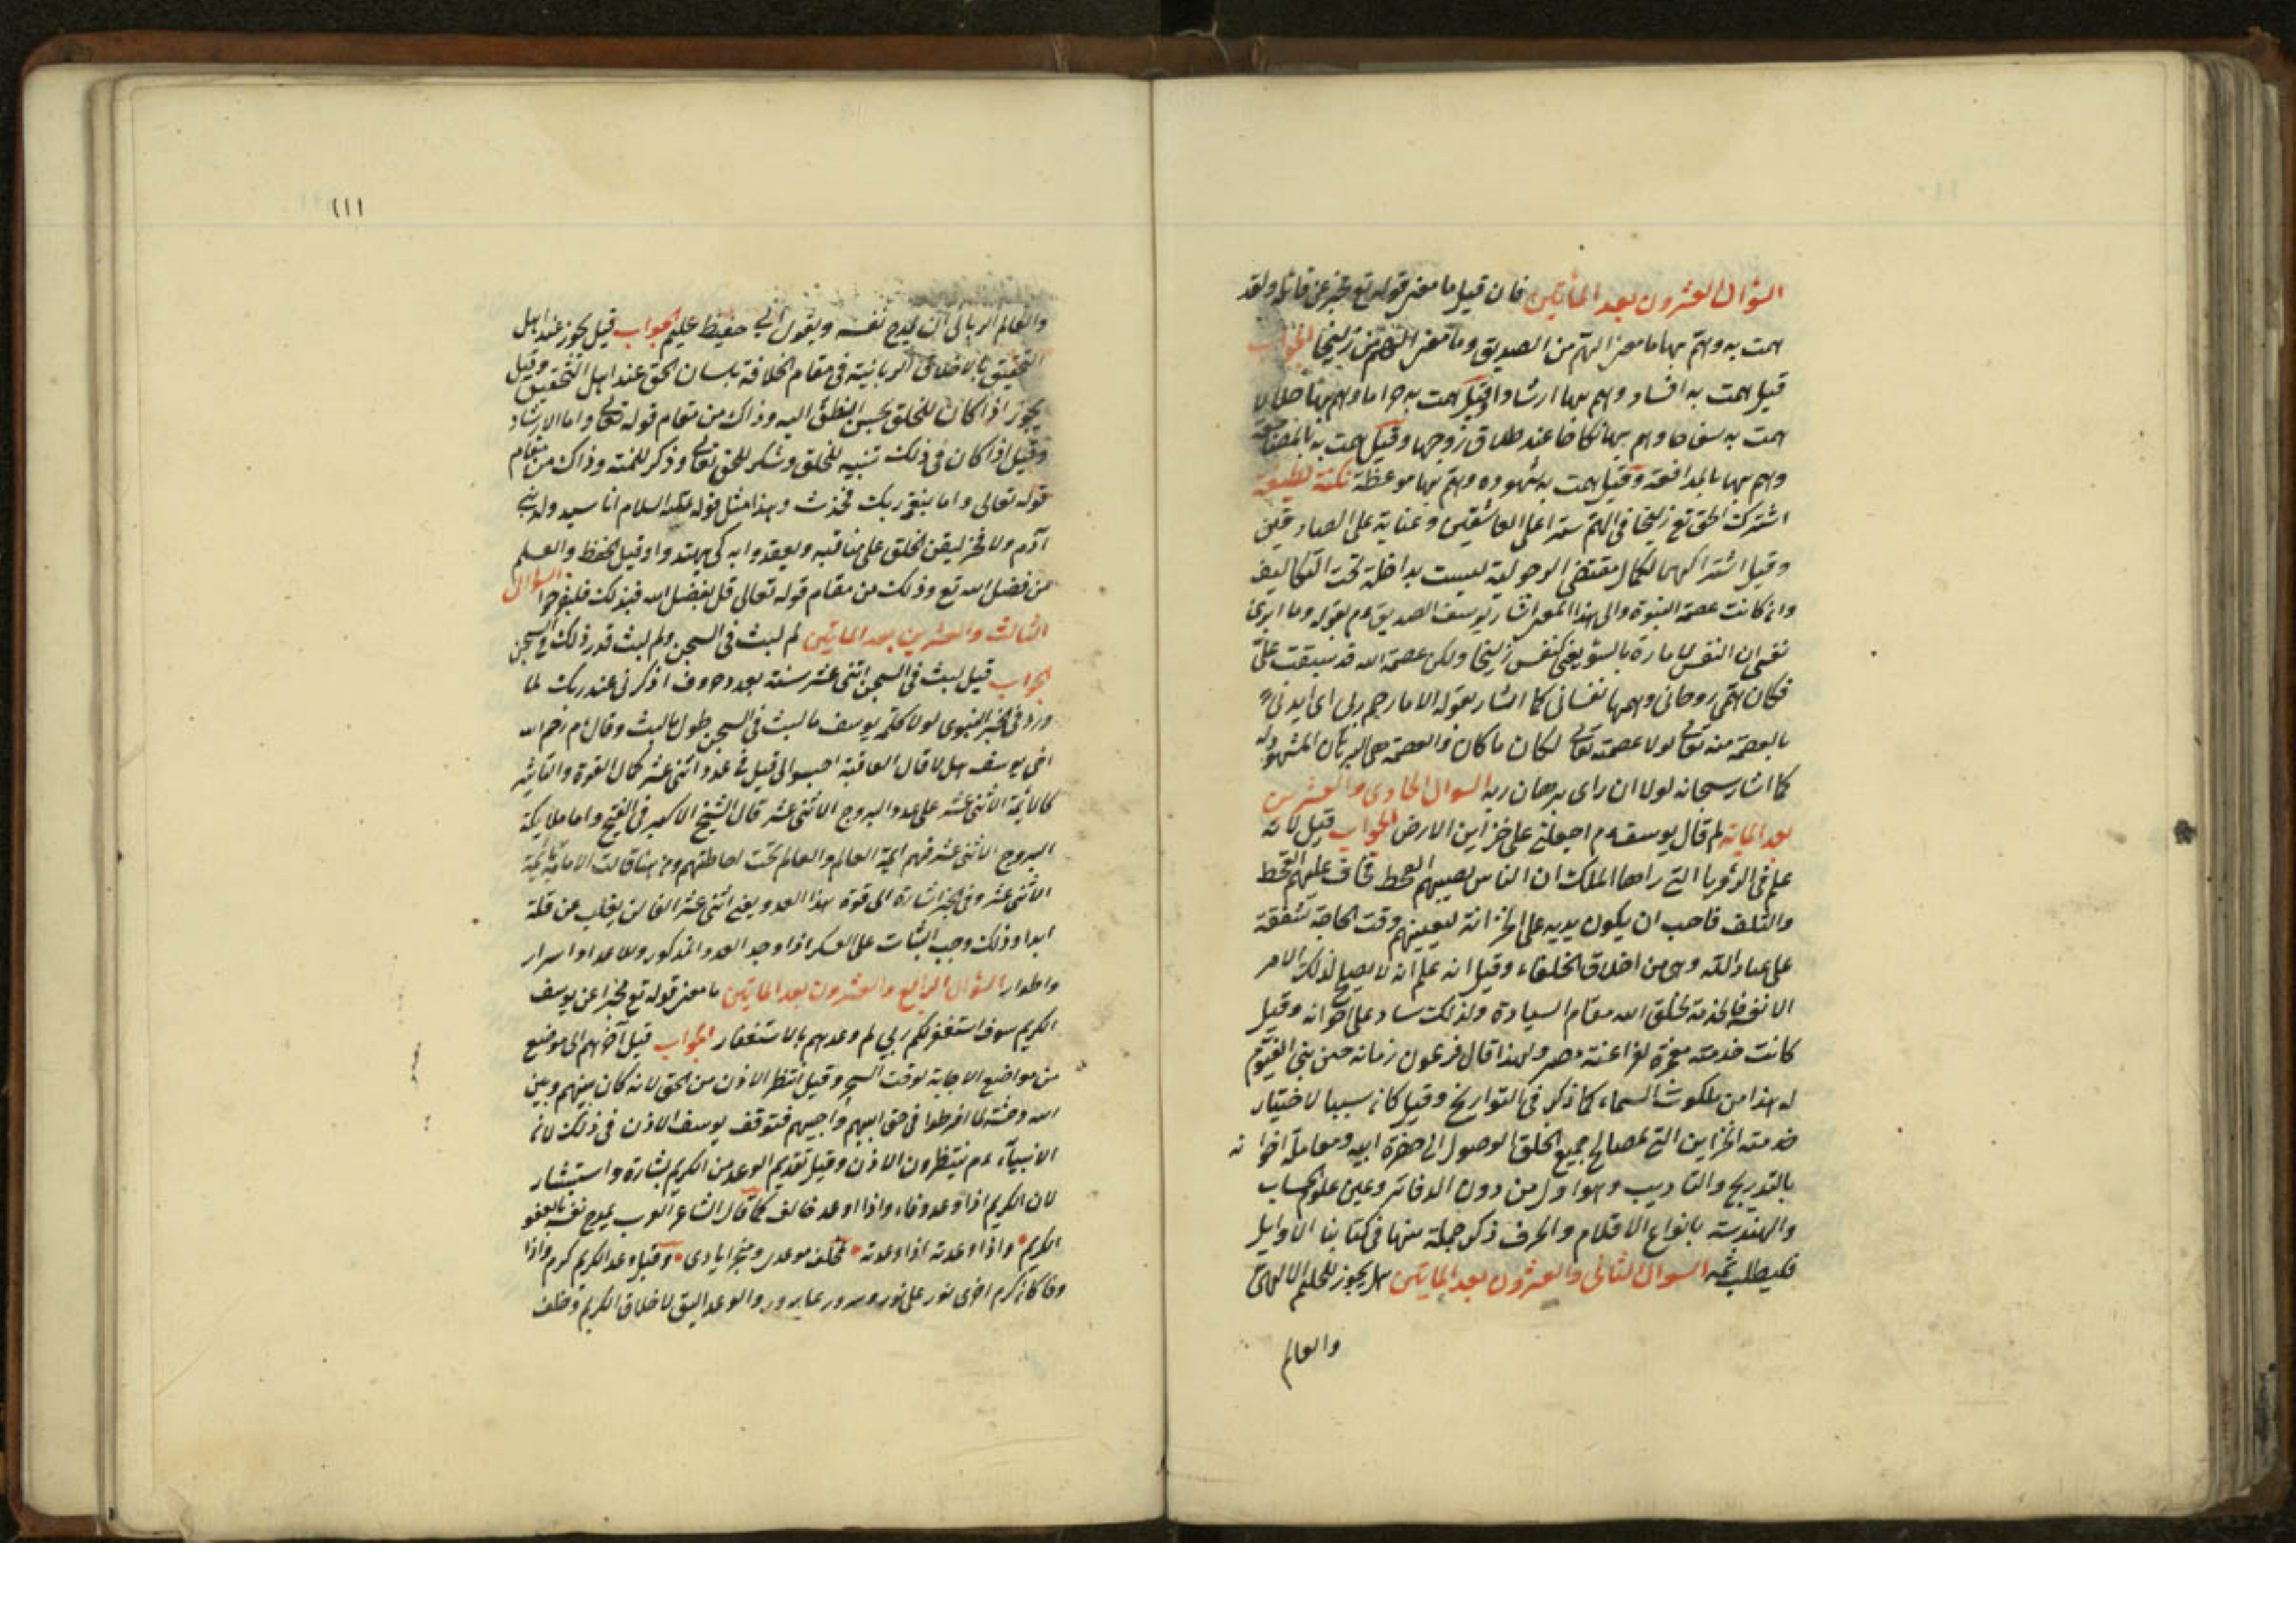 السؤال العشرون بعد المأتين فان قيل ما معنى قوله تع مخبرا عن قائله ولقد
همت به وهم بها ما معنى الهم من الصديق وما معنى الهم من زليخا الجواب
قيل همت به افساد وهم بها ارشادا وقيل همت به حراما وهم بها حلالا
همت به سفاحا وهم بها نكاحا عند طلاق زوجها وقيل همت به بالمضاجعة
وهم بها بالمدافعة وقيل همت به شهوده وهم بها موعظة نكتة لطيفة
اشترك الحق تع زليخا في الهم سترا على العاشقين وعناية على الصادقين
وقيل اشتراكهما لكمال مقتضى الرجولية ليست بداخلة تحت التكاليف
وان كانت عصمة النبوة والى هذا المعنى اشار يوسف الصديق ءم بقوله وما ابرئ
نفسي ان النفس لامارة بالسوء يعني كنفس زليخا ولكن عصمة الله قد سبقت علىّ
فكان همي روحاني وهمها نفساني كما اشار بقوله الا ما رحم ربي اى ايدني
بالعصمة منه تعالى لولا عصمته تعالى لكان ما كان والعصمة هي البرهان المشهود له
كما اشار سبحانه لولا ان راى برهان ربه السوال الحادى والعشرين
بعد المائة لم قال يوسف ءم اجعلني على خزاين الارض الجواب قيل لانه
علم في الرؤيا التي راها الملك ان الناس يصيبهم القحط فخاف عليهم القحط
والتلف فاحب ان يكون يديه على الخزانة ليعينهم وقت الحاجة شفقة
على عباد الله وهي من اخلاق الخلفاء وقيل انه علم انه لا يصلح لذلك الامر
الا نفسه فالخدمة لخلق الله مقام السيادة ولذلك ساد على اخوانه وقيل
كانت خدمته معجزة لفراعنة مصر ولهذا قال فرعون زمانه حين بنى الفيوم
له هذا من ملكوت السماء كما ذكر في التواريخ وقيل كان سببا لاختيار
خدمته الخزاين التي لمصالح جميع الخلق الوصول الى حضرة ابيه ومعاملة اخوانه
بالتدريج والتاديب وهو اول من دون الدفاتر وعين علوم الحساب
والهندسة بانواع الاقلام والحرف ذكر جملة منها في كتابنا الاوايل
فليطلب ثمه السوال الثاني والعشرون بعد المايتين هل يجوز للحليم الالهي
والعالم
١١١
والعالم الرباني ان يمدح نفسه ويقول اني حفيظ عليم الجواب قيل يجوز عند اهل
التحقيق بالاخلاق الربانية في مقام الخلافة بلسان الحق عند اهل التحقيق وقيل
يجوز اذا كان للخلق بحسن النطق اليه وذاك من مقام قوله تعالى واما الارشاد
وقيل اذا كان في ذلك تنبيه للخلق وشكر للحق تعالى وذكر للمنة وذاك من مقام
قوله تعالى واما بنعمة ربك فحدث وهذا مثل قوله عليه السلام انا سيد ولد بني
آدم ولا فخر ليقن الخلق على مناقبه ويعقدوا به كى يهتدوا وقيل الحفظ والعلم
من فضل الله تع وذلك من مقام قوله تعالى قل بفضل الله فبذلك فليفرحوا السؤال
الثالث والعشرين بعد المايتين لم لبث في السجن ولم لبث قدر ذلك في السجن
الجواب قيل لبث في السجن اثنى عشر سنة بعدد حروف اذكرني عند ربك لما
ورد في الخبر النبوى لولا كلمة يوسف ما لبث في السجن طول ما لبث وقال ءم رحم الله
اخي يوسف هل لا قال العاقبة احب الى قيل في عدد اثنى عشر كمال القوة والتاثير
كالائمة الاثنى عشر على عدد البروج الاثنى عشر قال الشيخ الاكبر في الفتح واما ملايكة
البروج الاثنى عشر فهم ايمة العالم والعالم تحت احاطتهم ومن هنا قالت الامامية بائمة
الاثنى عشر وفي الخبر اشارة الى قوة هذا العدد يعني اثنى عشر الفا لن يغلب عن قلة
ابدا وذلك وجب الثبات على العسكر اذا وجد العدد المذكور وللاعداد اسرار
واطوار السؤال الرابع والعشرون بعد المايتين ما معنى قوله تع مخبرا عن يوسف
الكريم سوف استغفر لكم ربي لم وعدهم بالاستغفار الجواب قيل آخرهم الى موضع
من مواضع الاجابة لوقت السحر وقيل انتظر الاذن من الحق لانه كان بينهم وبين
الله وحشة لما افرطوا في حق ابيهم واخيهم فتوقف يوسف الاذن في ذلك لان
الانبياء ءم ينتظرون الاذن وقيل تقديم الوعد من الكريم بشارة واستبشار
لان الكريم اذا وعد وفاء واذا اوعد خالف كما قال الشاعر العرب يمدح نفسه بالعفو
الكريم واذا اوعدته اذا وعدته لمخلف موعدى ومنجز ايادى وقيل وعد الكريم كرم واذا
وفا كان كرم اخرى نور على نور وسرور على سرور والوعد اليق لاخلاق الكريم وخلف